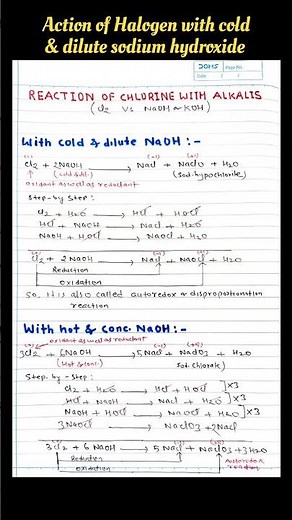 Action of Halogen with cold
& dilute sodium hydroxide
Page No.
Date
REACTION OF CHLORINE WITH ALKALIS
(Cl2 Vs NaOH or KOH)
With cold & dilute NaOH :-
(0) (-1) (+1)
Cl2 + 2NaOH → NaCl + NaClO + H2O
(cold & dil.) (Sod. hypochlorite)
oxidant as well as reductant
Step-by Step :
Cl2 + H2O → HCl + HOCl
HCl + NaOH → NaCl + H2O
NaOH + HOCl → NaOCl + H2O
Cl2 + 2NaOH → NaCl + NaOCl + H2O
Reduction
Oxidation
So, It is also called autoredox or disproportionation
reaction
With hot & Conc. NaOH :-
oxidant as well as reductant
3Cl2 + 6NaOH → 5NaCl + NaClO3 + H2O
(Hot & conc) Sod. Chlorate)
Step. by - Step :
Cl2 + H2O → HCl + HOCl ]×3
HCl + NaOH → NaCl + H2O ]×3
NaOH + HOCl → NaOCl + H2O ]×3
3NaOCl → NaClO3 + 2NaCl
3Cl2 + 6 NaOH → 5 NaCl + NaClO3 + 3H2O
Reduction
Oxidation
Autoredox
reaction